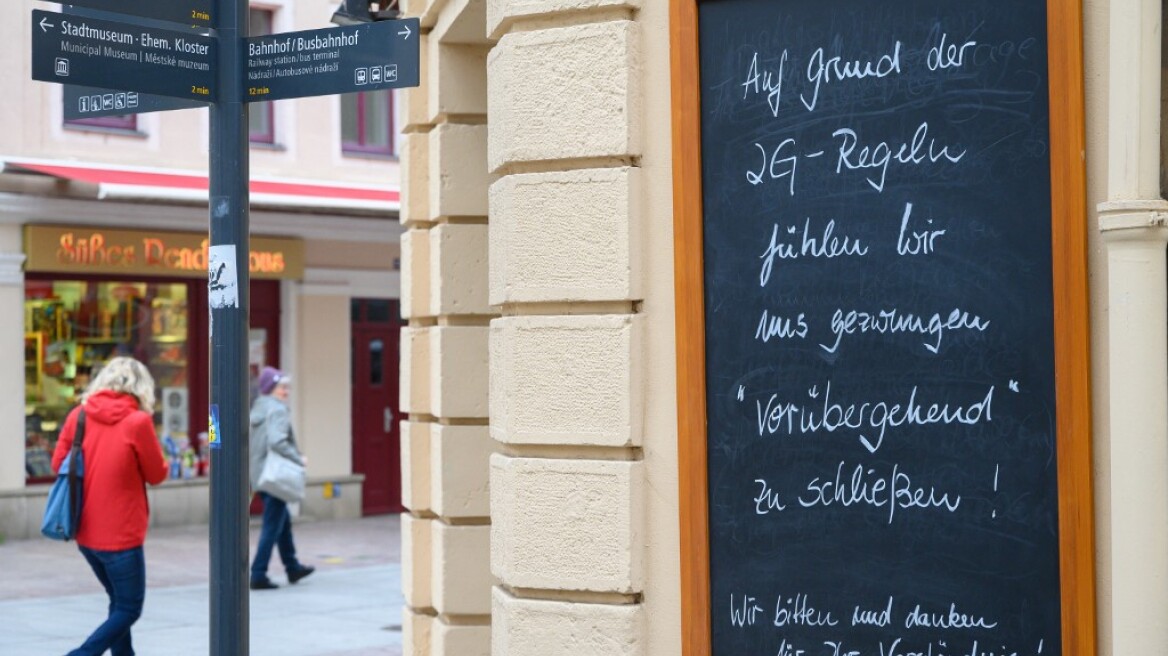 2 min
Stadtmuseum · Ehem. Kloster
Municipal Museum | Městské muzeum
2 min
Bahnhof / Busbahnhof
Railway station / bus terminal
Nádraží / Autobusové nádraží
WC
12 min
WC
Süßes Rendezvous
Auf Grund der
2G-Regeln
fühlen wir
uns gezwungen
"vorübergehend"
zu schließen !
Wir bitten und danken
für Ihr Verständnis !